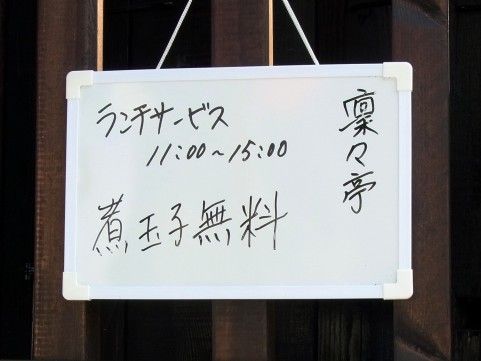 ランチサービス
11:00~15:00
煮玉子無料
凛々亭